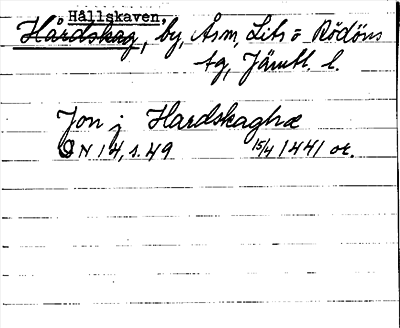 Hällskaven,
Hårdskag, by, Ås sn, Lits o Rödöns
tg, Jämtl. l.
Jon j Hardskaghæ
DN 14, s. 49 15/4 1441 or.